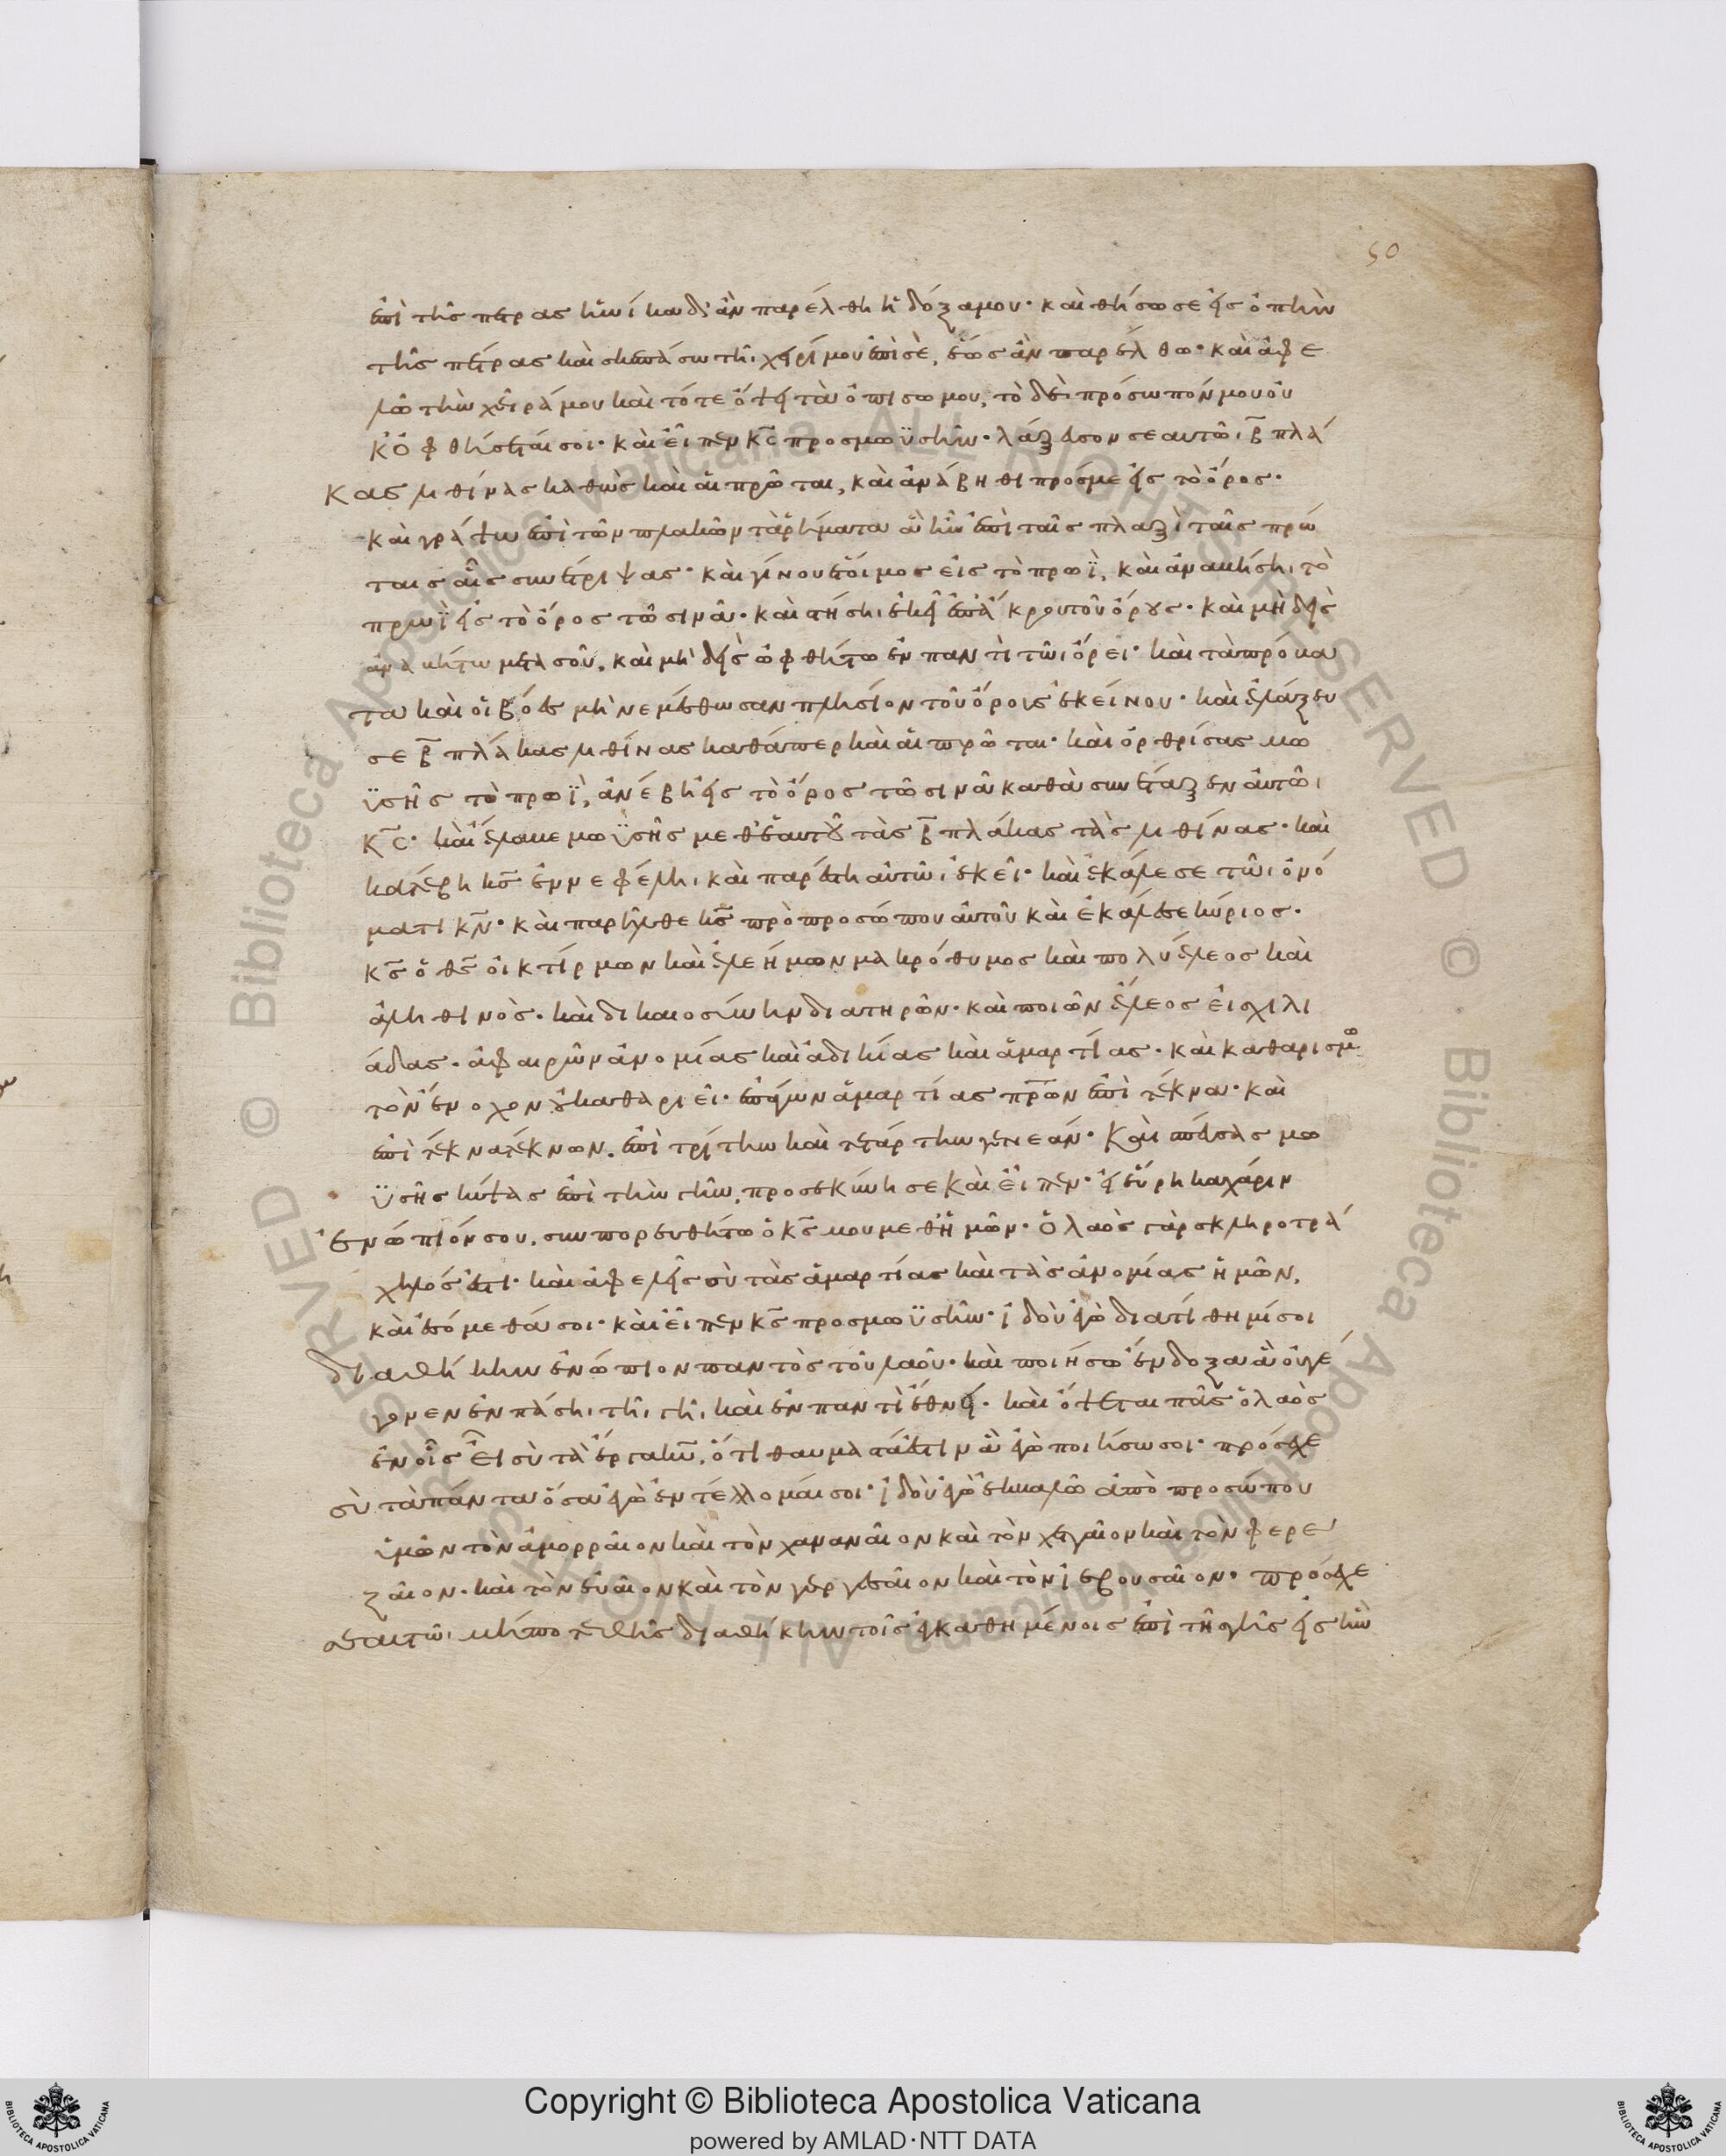 50
ἐπὶ τῆς πέτρας ἡνίκα δ' ἂν παρέλθη ἡ δόξα μου· καὶ θήσω σε εἰς ὀπὴν
τῆς πέτρας καὶ σκεπάσω τῆι χειρί μου ἐπὶ σὲ, ἕως ἂν παρέλθω· καὶ ἀφε
λῶ τὴν χεῖρά μου καὶ τότε ὄψει τὰ ὀπίσω μου, τὸ δὲ πρόσωπόν μου οὐ
κ ὀφθήσεταί σοι· καὶ εἶπεν κ̅ς̅ προς μωϋσῆν· λάξευσον σεαυτῶι β̅ πλά
κας λιθίνας καθὼς καὶ αἱ πρῶται, καὶ ἀνάβηθι πρός με εἰς τὸ ὄρος·
καὶ γράψω ἐπὶ τῶν πλακῶν τὰ ῥήματα ἃ ἦν ἐπὶ ταῖς πλαξὶ ταῖς πρώ
ταις αἷς συνέτριψας· καὶ γίνου ἕτοιμος εἰς τὸ πρωῒ, καὶ ἀναβήση τὸ
πρωῒ εἰς τὸ ὄρος τὸ σινᾶ· καὶ στήση ἐκεῖ ἐπ' ἄκρου τοῦ ὄρους· καὶ μηδεὶς
ἀναβήτω μετὰ σοῦ, καὶ μὴδεὶς ὀφθήτω ἐν παντὶ τῶι ὄρει· καὶ τὰ πρόβα
τα καὶ οἱ βόες μὴ νεμέσθωσαν πλησίον τοῦ ὄρους ἐκείνου· καὶ ἐλάξευ
σε β̅ πλάκας λιθίνας καθάπερ καὶ αἱ πρῶται· καὶ ὀρθρίσας μω
ϋσῆς τὸ πρωῒ, ἀνέβη εἰς τὸ ὄρος τὸ σινᾶ καθὰ συνέταξεν αὐτῶι
κ̅ς̅· καὶ ἔλαβε μωϋσῆς μεθ' ἑαυτοῦ τὰς β̅ πλάκας τὰς λιθίνας· καὶ
κατέβη κ̅ς̅ ἐν νεφέλη, καὶ παρέστη αὐτῶι ἐκεῖ· καὶ ἐκάλεσε τῶι ὀνό
ματι κ̅ν̅· καὶ παρῆλθε κ̅ς̅ πρὸ προσώπου αὐτοῦ καὶ ἐκάλεσε κύριος·
κ̅ς̅ ὁ θ̅ς̅ οἰκτίρμων καὶ ἐλεήμων μακρόθυμος καὶ πολυέλεος καὶ
ἀληθινὸς· καὶ δικαιοσύνην διατηρῶν· καὶ ποιῶν ἔλεος εἰς χιλι
άδας· ἀφαιρῶν ἀνομίας καὶ ἀδικίας καὶ ἁμαρτίας· καὶ καθαρισμῶ
τὸν ἔνοχον οὐ καθαριεῖ· ἐπάγων ἁμαρτίας π̅ρ̅ων ἐπὶ τέκνα· καὶ
ἐπὶ τέκνα τέκνων, ἐπὶ τρίτην καὶ τετάρτην γενεάν· Καὶ σπεύσας μω
ϋσῆς κύψας ἐπὶ τὴν γῆν, προσεκύνησε καὶ εἶπεν· εἰ εὕρηκα χάριν
ἐνώπιόν σου, συνπορευθήτω ὁ κ̅ς̅ μου μεθ' ἡμῶν· ὁ λαὸς γὰρ σκληροτρά
χηλός ἐστι· καὶ ἀφελεῖς σὺ τὰς ἁμαρτίας καὶ τὰς ἀνομίας ἡμῶν,
καὶ ἐσόμεθά σοι· καὶ εἶπεν κ̅ς̅ προς μωϋσῆν· ἰδοὺ ἐγὼ διατίθημί σοι
διαθήκην ἐνώπιον παντὸς τοῦ λαοῦ· καὶ ποιήσω ἔνδοξα ἃ οὐ γέ
γονεν ἐν πάση τῆι γῆι καὶ ἐν παντὶ ἔθνει· καὶ ὄψεται πᾶς ὁ λαὸς
ἐν οἷς εἶ σὺ τὰ ἔργα κ̅υ̅, ὅτι θαυμαστά ἐστιν ἃ ἐγὼ ποιήσω σοι· πρόσεχε
σὺ τὰ πάντα ὅσα ἐγὼ ἐντέλλομαί σοι· ἰδοὺ ἐγὼ ἐκβαλῶ ἀπὸ προσώπου
ὑμῶν τὸν ἀμορραῖον καὶ τὸν χαναναῖον καὶ τὸν χετταῖον καὶ τὸν φερε
ζαῖον· καὶ τὸν εὐαῖον καὶ τὸν γεργεσαῖον καὶ τὸν ἰεβουσαῖον· πρόσεχε
σεαυτῶι μήποτε θῆς διαθήκην τοῖς ἐγκαθημένοις ἐπὶ τῆς γῆς εἰς ἣν